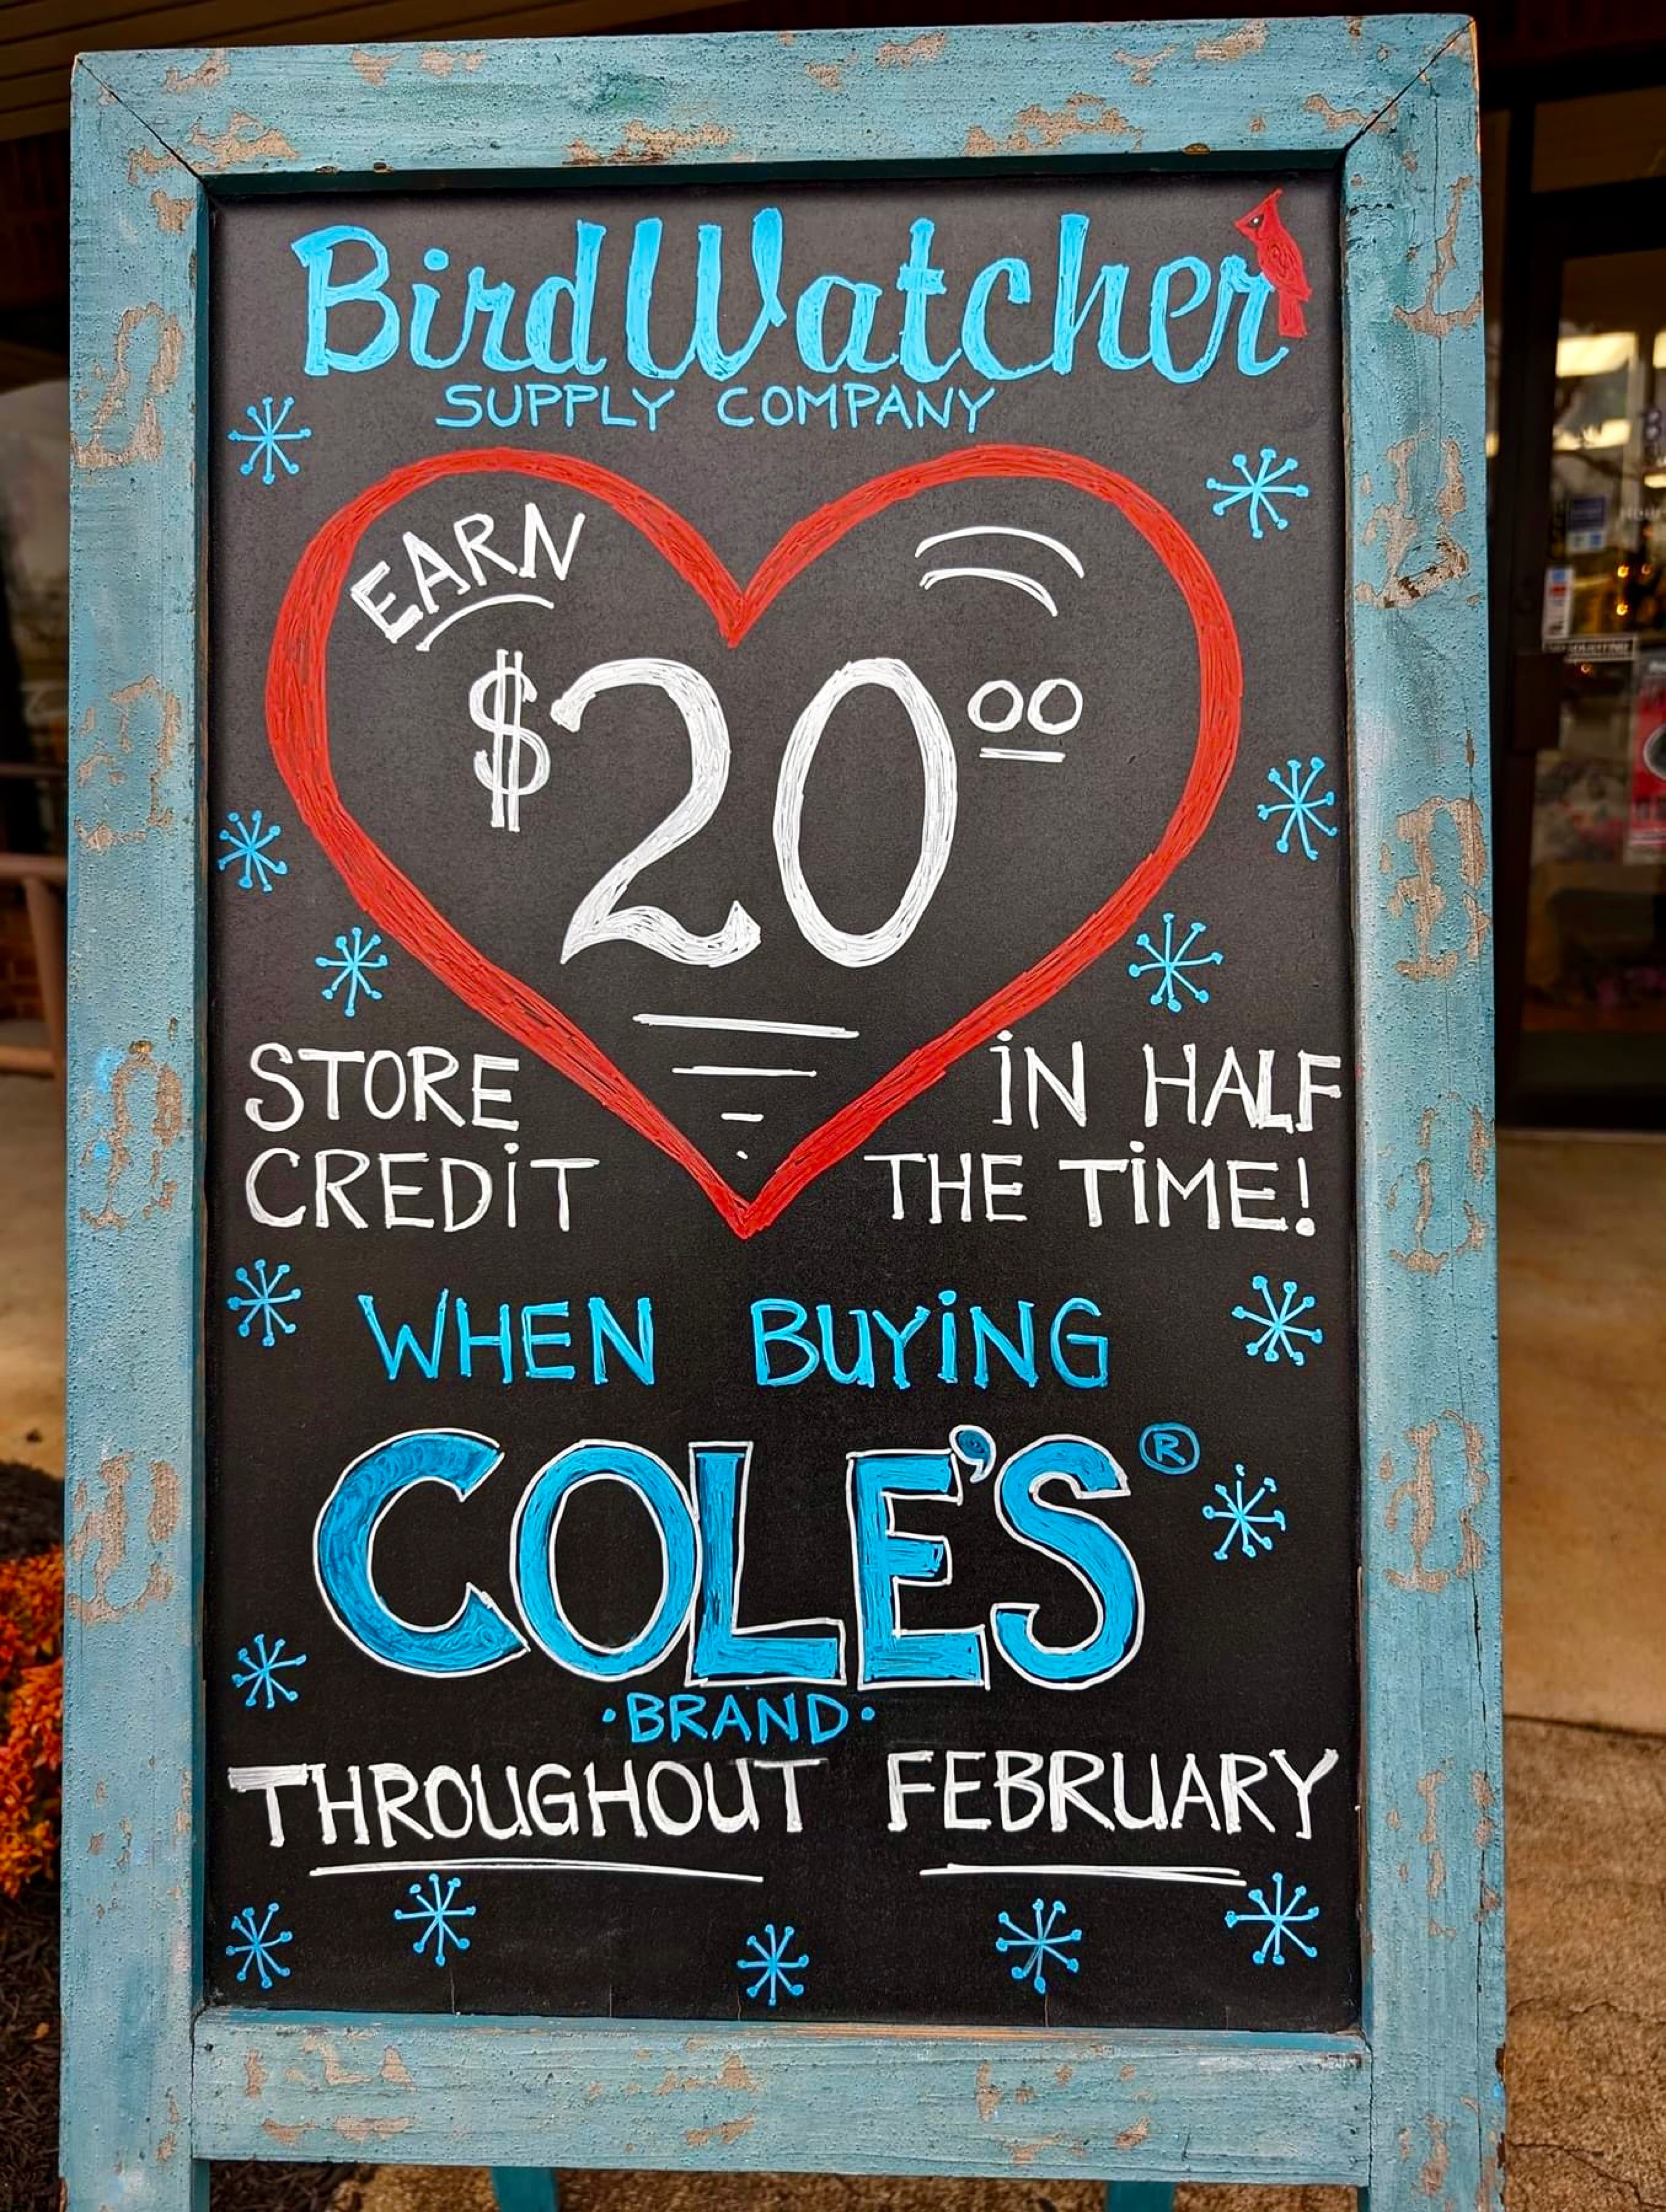 BirdWatcher
SUPPLY COMPANY
EARN
$20.00
STORE CREDIT
IN HALF THE TIME!
WHEN BUYING
COLE'S®
•BRAND•
THROUGHOUT FEBRUARY